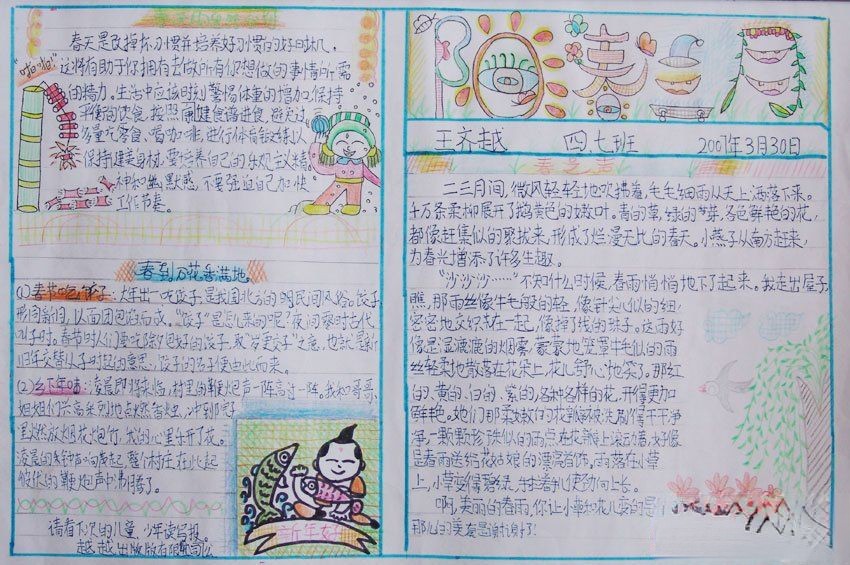 春天是改掉坏习惯并培养好习惯的好时机，
"啪啪"
这将有助于你拥有去做所有你想做的事情所需
的精力，生活中应该时刻警惕体重的增加，保持
平衡的饮食，按照
健食谱进食，避免过
多量吃零食、喝咖啡，进行体育锻练以
保持健美身材，要培养自己的乐观主义精
神和幽默感，不要强迫自己加快
工作节奏。
春到万花香满地
(1)春节吃饺子：大年出一吃饺子，是我国北方的
民间风俗。饺子
形同新月，以面团包馅而成。"饺子"是怎么来的呢？夜间零时古代
叫子时。春节时人们要吃除夕包好的饺子，取"岁更交子"之意，也就是新
旧年交替从子时起的意思，饺子的名子便由此而来。
(2)乡下年味：凌晨即将来临，村里的鞭炮声一阵高过一阵。我和哥哥、
姐姐们兴高采烈地点燃香烛，冲到院子
里燃放烟花炮竹，我的心里乐开了花。
凌晨的
钟声一响起，整个村庄在此起
彼伏的鞭炮声中沸腾了。
新年好
请看下次的儿童，少年读写报。
越越出版有限公
阳
美
王齐越 四.七班 2007年3月30日
春之声
二三月间，微风轻轻地吹拂着，毛毛细雨从天上洒落下来。
千万条柔柳展开了鹅黄色的嫩叶。青的草，绿的芽，各色鲜艳的花，
都像赶集似的聚拢来，形成了烂漫无比的春天。小燕子从南方赶来，
为春光增添了许多生趣。
"沙沙沙……"不知什么时候，春雨悄悄地下了起来。我走出屋子，
瞧，那雨丝像牛毛般的轻，像针尖似的细，
密密地交织在一起，像掉了线的珠子。这雨好
像是湿漉漉的烟雾，蒙蒙地笼罩牛毛似的雨
丝轻柔地散落在花朵上，花儿舒心地笑了。那红
的、黄的、白的、紫的，各种各样的花，开得更加
鲜艳。她们那柔嫩的花瓣被洗刷得干干净
净，一颗颗珍珠似的雨点在花瓣上滚动着，好像
是春雨送给花姑娘的漂亮首饰，雨落在小草
上，小草变得碧绿，
向上长。
啊，美丽的春雨，你让小草和花儿变的是
那么的美